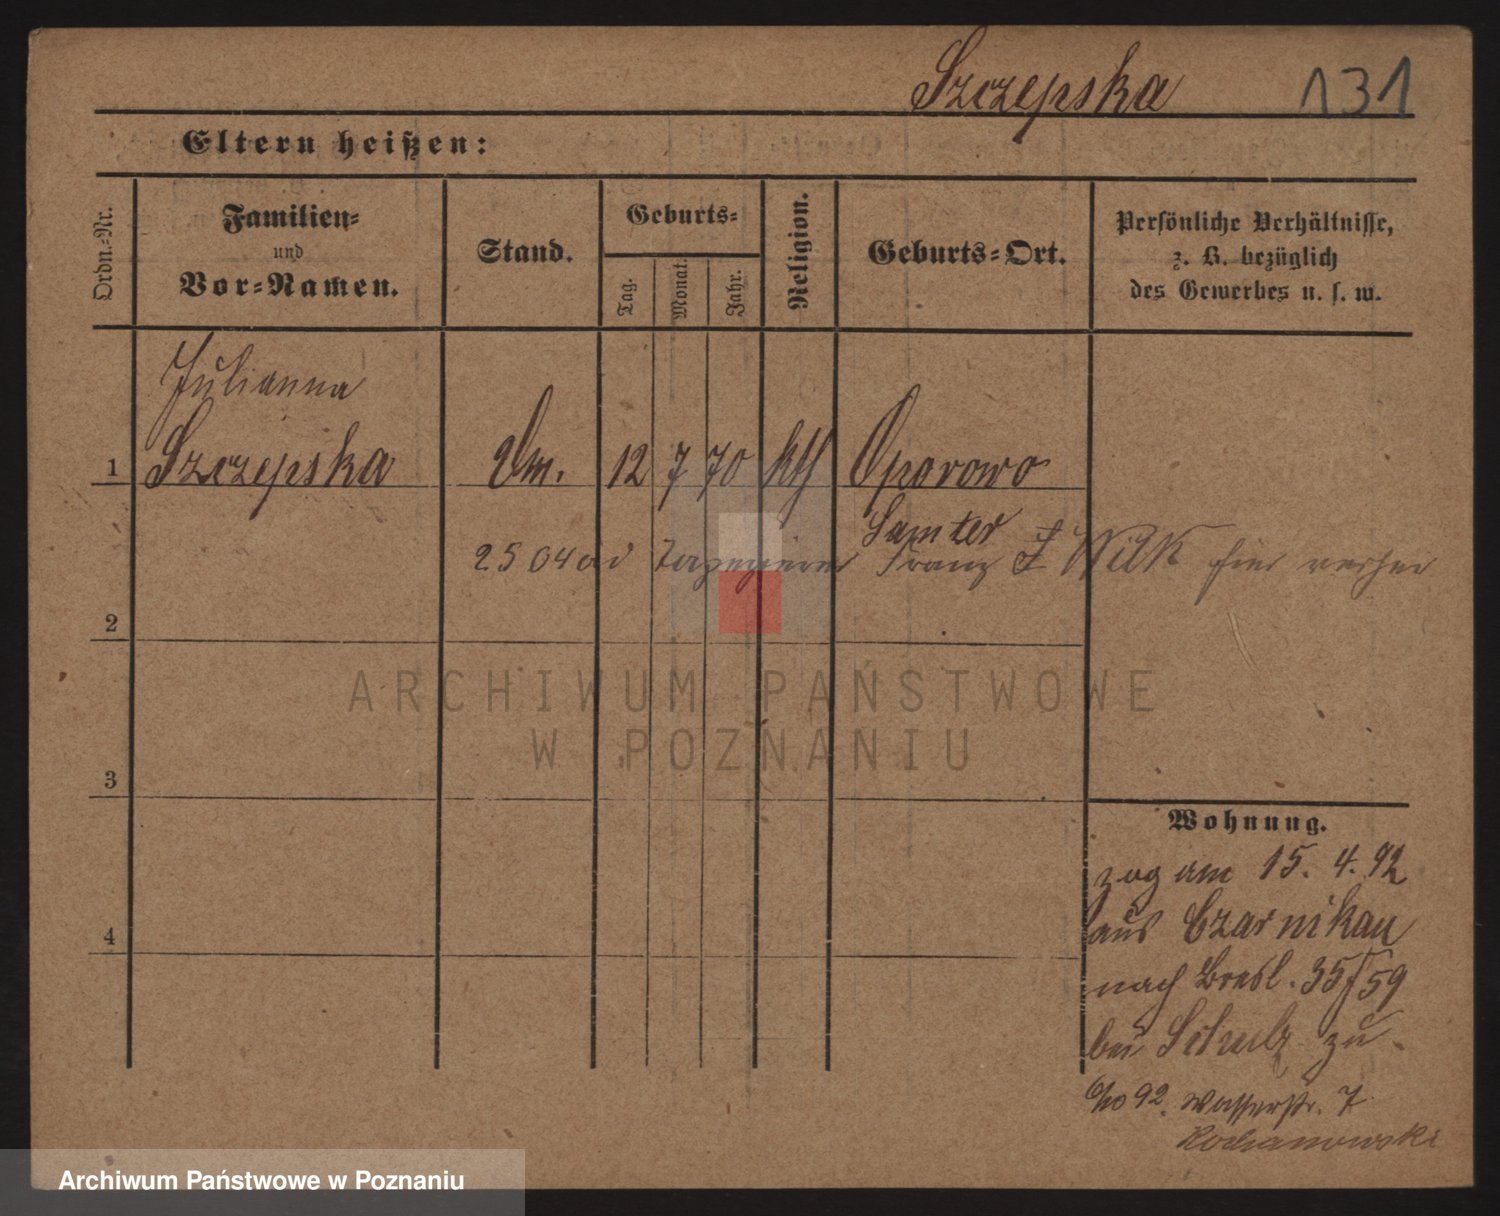 Szczepska 131
Eltern heißen:
Ordn.-Nr.
Familien-
und
Vor-Namen.
Stand.
Geburts-
Tag.
Monat.
Jahr.
Religion.
Geburts-Ort.
Persönliche Verhältnisse,
z. B. bezüglich
des Gewerbes u. s. w.
Julianna
1 Szczepska Dm. 12 7 70 kth Oporowo
Samter
2504 Tapezierer Franz Wilk hier verher
2
3
4
ARCHIWUM PAŃSTWOWE
W POZNANIU
Wohnung.
zog am 15. 4. 92
aus Czarnikau
nach Bresl. 35/59
bei Schulz zu
/10 92. Wasserstr. 7
Kochanowski
Archiwum Państwowe w Poznaniu